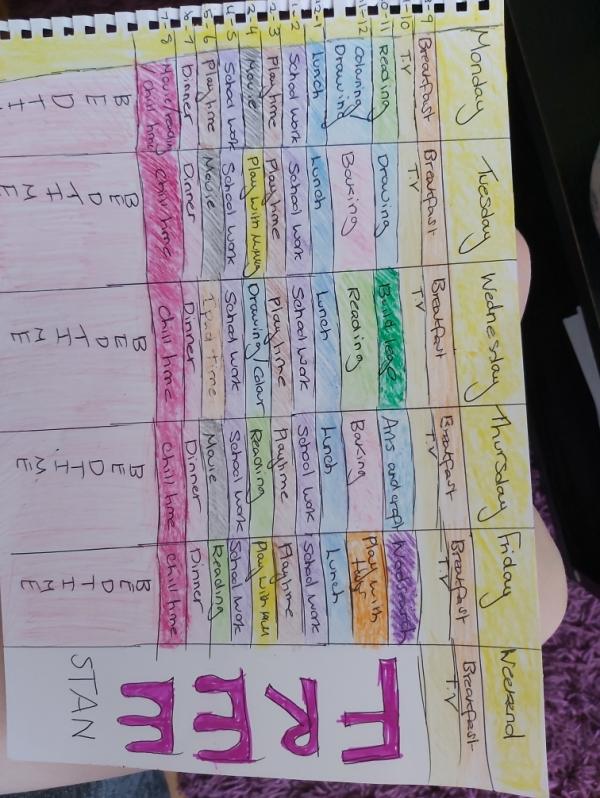 Monday Tuesday Wednesday Thursday Friday Weekend
8-9 Breakfast Breakfast Breakfast Breakfast Breakfast Breakfast
9-10 T.V T.V T.V T.V T.V T.V
10-11 Reading Drawing Build lego Arts and craft
11-12 Colouring/ Baking Reading Baking Play with
Drawing
12-1 Lunch Lunch Lunch Lunch Lunch
1-2 School work School work School work School work School work
2-3 Playtime Playtime Playtime Playtime Playtime
3-4 Movie Play with Drawing/Colour Reading Play with
4-5 School work School work School work School work School work
5-6 Playtime Movie Ipad time Movie Reading
6-7 Dinner Dinner Dinner Dinner Dinner
7-8 Movie/reading
Chill time Chill time Chill time Chill time Chill time
BEDTI BEDTIME BEDTIME BEDTIME BEDTIME
FREE
STAN